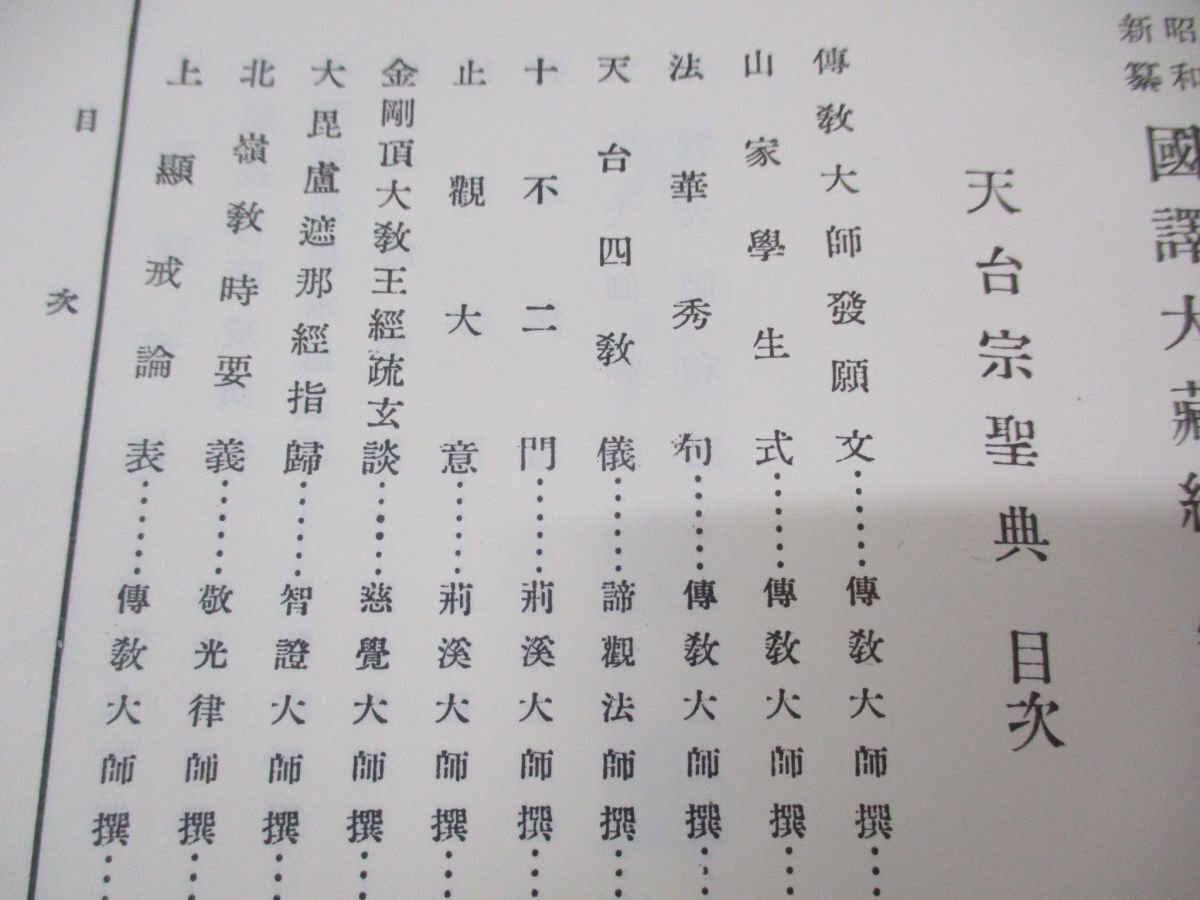 昭和
新纂
國譯大藏經
天台宗聖典 目次
傳敎大師發願文……傳敎大師撰…
山家學生式……傳敎大師撰…
法華秀句……傳敎大師撰…
天台四敎儀……諦觀法師撰…
十不二門……荊溪大師撰…
止觀大意……荊溪大師撰…
金剛頂大敎王經疏玄談……慈覺大師撰…
大毘盧遮那經指歸……智證大師撰…
北嶺敎時要義……敬光律師撰…
上顯戒論表……傳敎大師撰…
目次